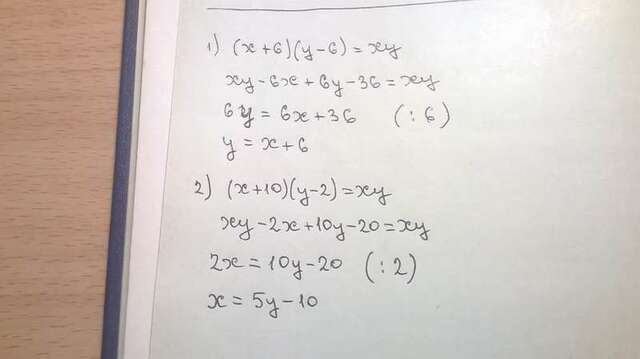 1) (x+6)(y-6)=xy
xy-6x+6y-36=xy
6y=6x+36 (:6)
y=x+6
2) (x+10)(y-2)=xy
xy-2x+10y-20=xy
2x=10y-20 (:2)
x=5y-10